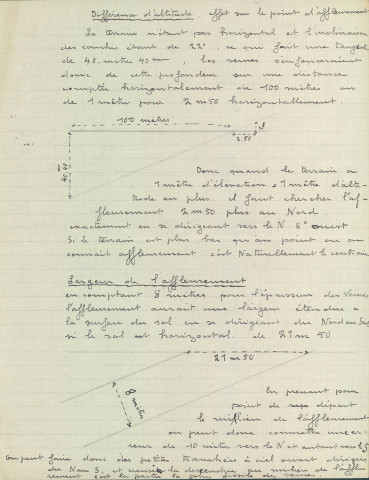 Différence d'altitude, effet sur le point d'affleurement
Le terrain n'étant pas horizontal et l'inclinaison
des couches étant de 22°, ce qui fait une tangente
de 40. mètre 40 cm, les veines s'enfonceraient
donc de cette profondeur sur une distance
comptée horizontalement de 100 mètres ou
de 1 mètre pour 2 m 50 horizontallement.
100 mètres
2.50
40,40
Donc quand le terrain a
1 mètre d'élévation = 1 mètre d'alti-
tude en plus il faut chercher l'af-
fleurement 2 m 50 plus au Nord.
exactement en se dirigeant vers le N 8° ouest
Si le terrain est plus bas qu'au point ou on
connait affleurement c'est Naturellement le contraire
Largeur de l'affleurement
en comptant 8 mètres pour l'épaisseur des Veines
l'affleurement aurait une largeur étendue a
la surface du sol en se dirigeant du Nord au Sud
si le sol est horizontal. de 21 m 50
21 m 50
8 mètres
En prenant pour
point de départ
le milieu de l'affleurement
on peut donc commettre une er-
reur de 10 mètre vers le N et autant vers le S
On peut faire donc des petites tranchées à ciel ouvert dirigées
du N au S, et ensuite la descendre au milieu de l'affleu-
rement